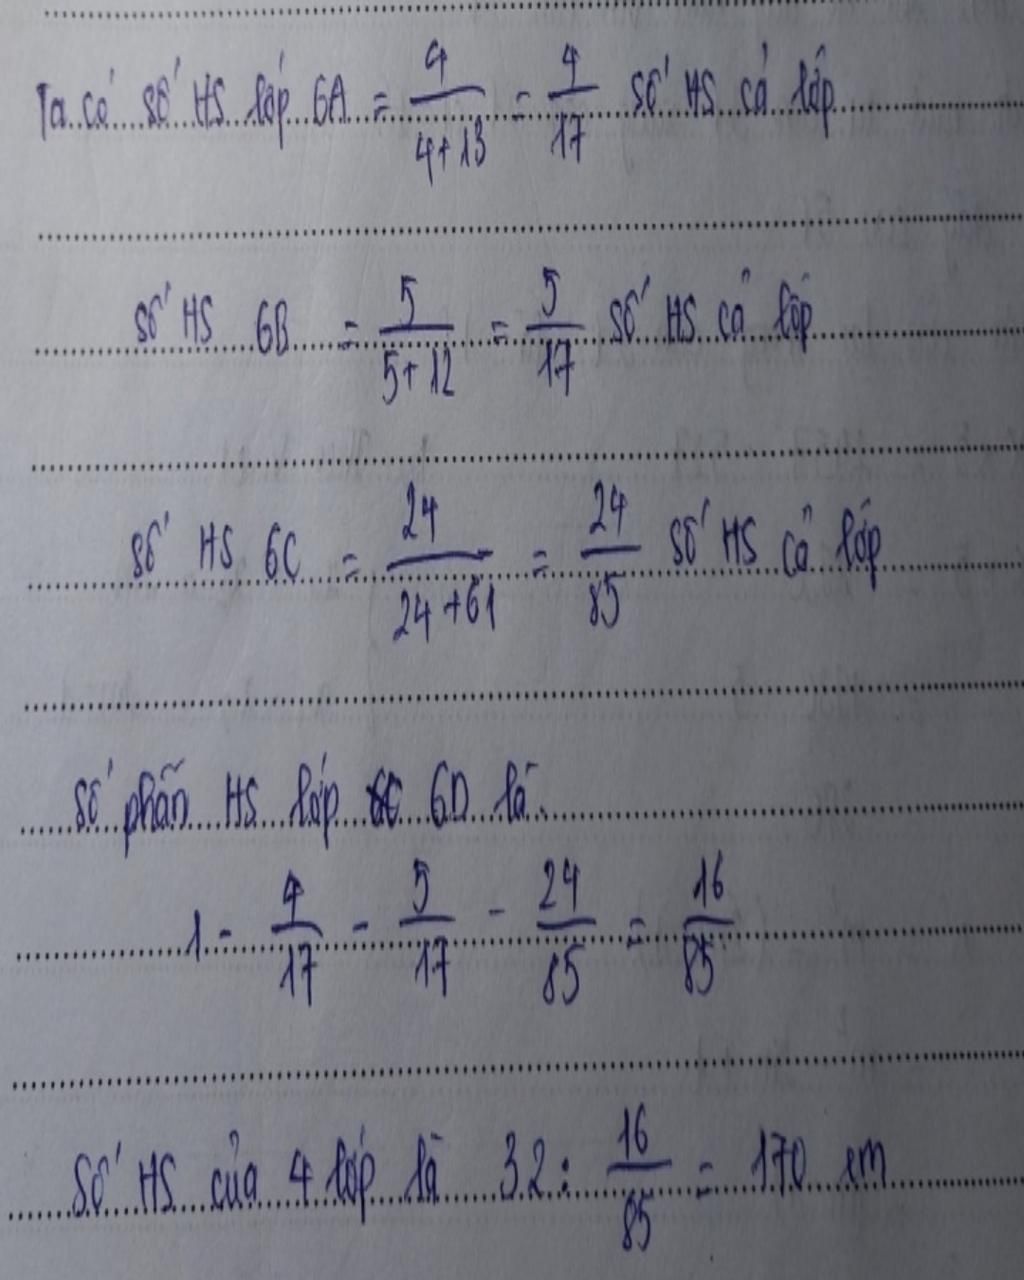 Ta có số HS lớp 6A = 4/(4+13) = 4/17 số HS cả lớp
số HS 6B = 5/(5+12) = 5/17 số HS cả lớp
số HS 6C = 24/(24+61) = 24/85 số HS cả lớp
số phần HS lớp 6D là
1 - 4/17 - 5/17 - 24/85 = 16/85
Số HS của 4 lớp là 32 : 16/85 = 170 em